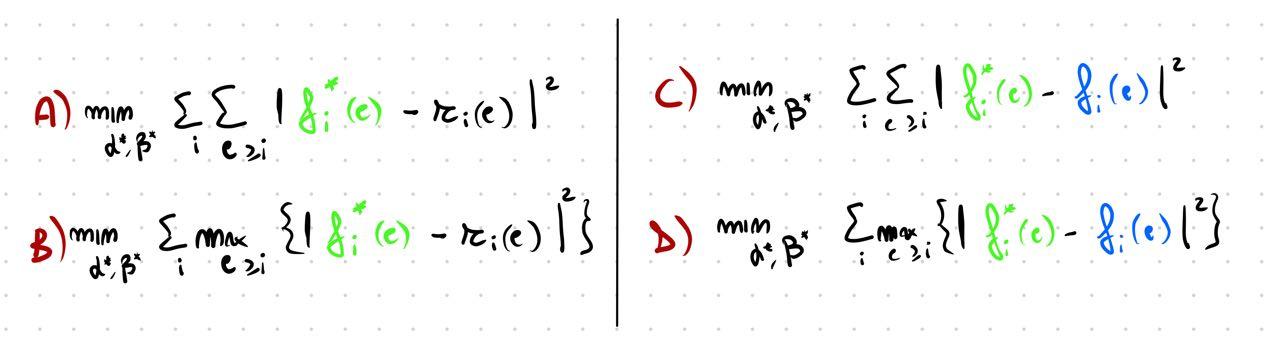 A) min α*, β* Σ i Σ e ≥ i | f i * (e) - r i (e) | 2
B) min α*, β* Σ i max e ≥ i { | f i * (e) - r i (e) | 2 }
C) min α*, β* Σ i Σ e ≥ i | f i * (e) - f i (e) | 2
D) min α*, β* Σ i max e ≥ i { | f i * (e) - f i (e) | 2 }